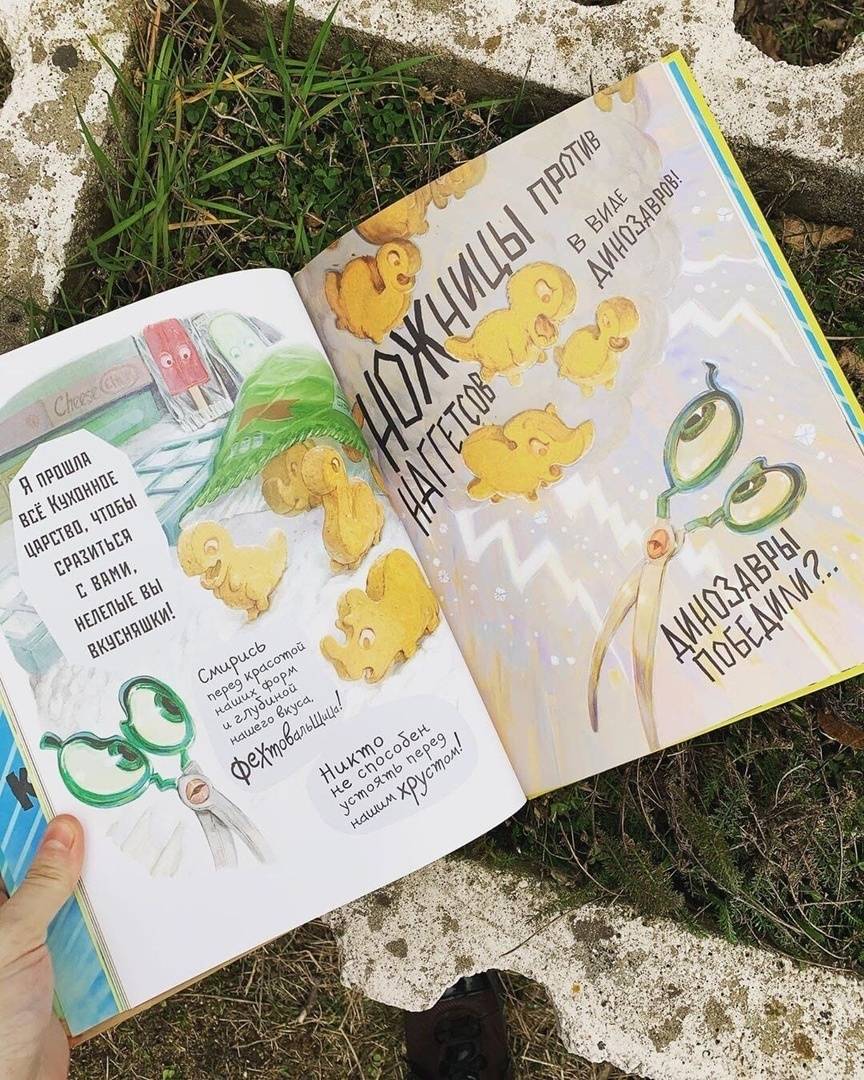 Cheese
Я прошла
всё Кухонное
царство, чтобы
сразиться
с вами,
нелепые вы
вкусняшки!
Смирись
перед красотой
наших форм
и глубиной
нашего вкуса,
фехтовальщица!
Никто
не способен
устоять перед
нашим хрустом!
К
Ножницы против
наггетсов
в виде
динозавров!
Динозавры
победили?..